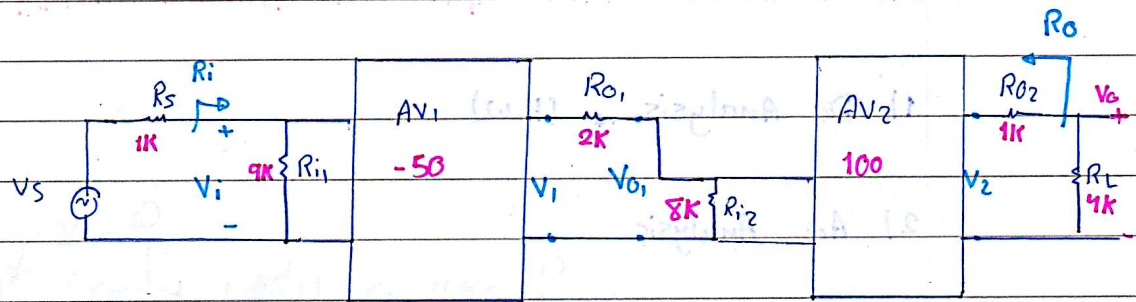 Ro
Ri
Rs
1K
+
Vs
Vi
-
9K
Ri1
AV1
-50
Ro1
2K
V1
Vo1
8K
Ri2
AV2
100
V2
Ro2
1K
Vo
+
RL
4K
-